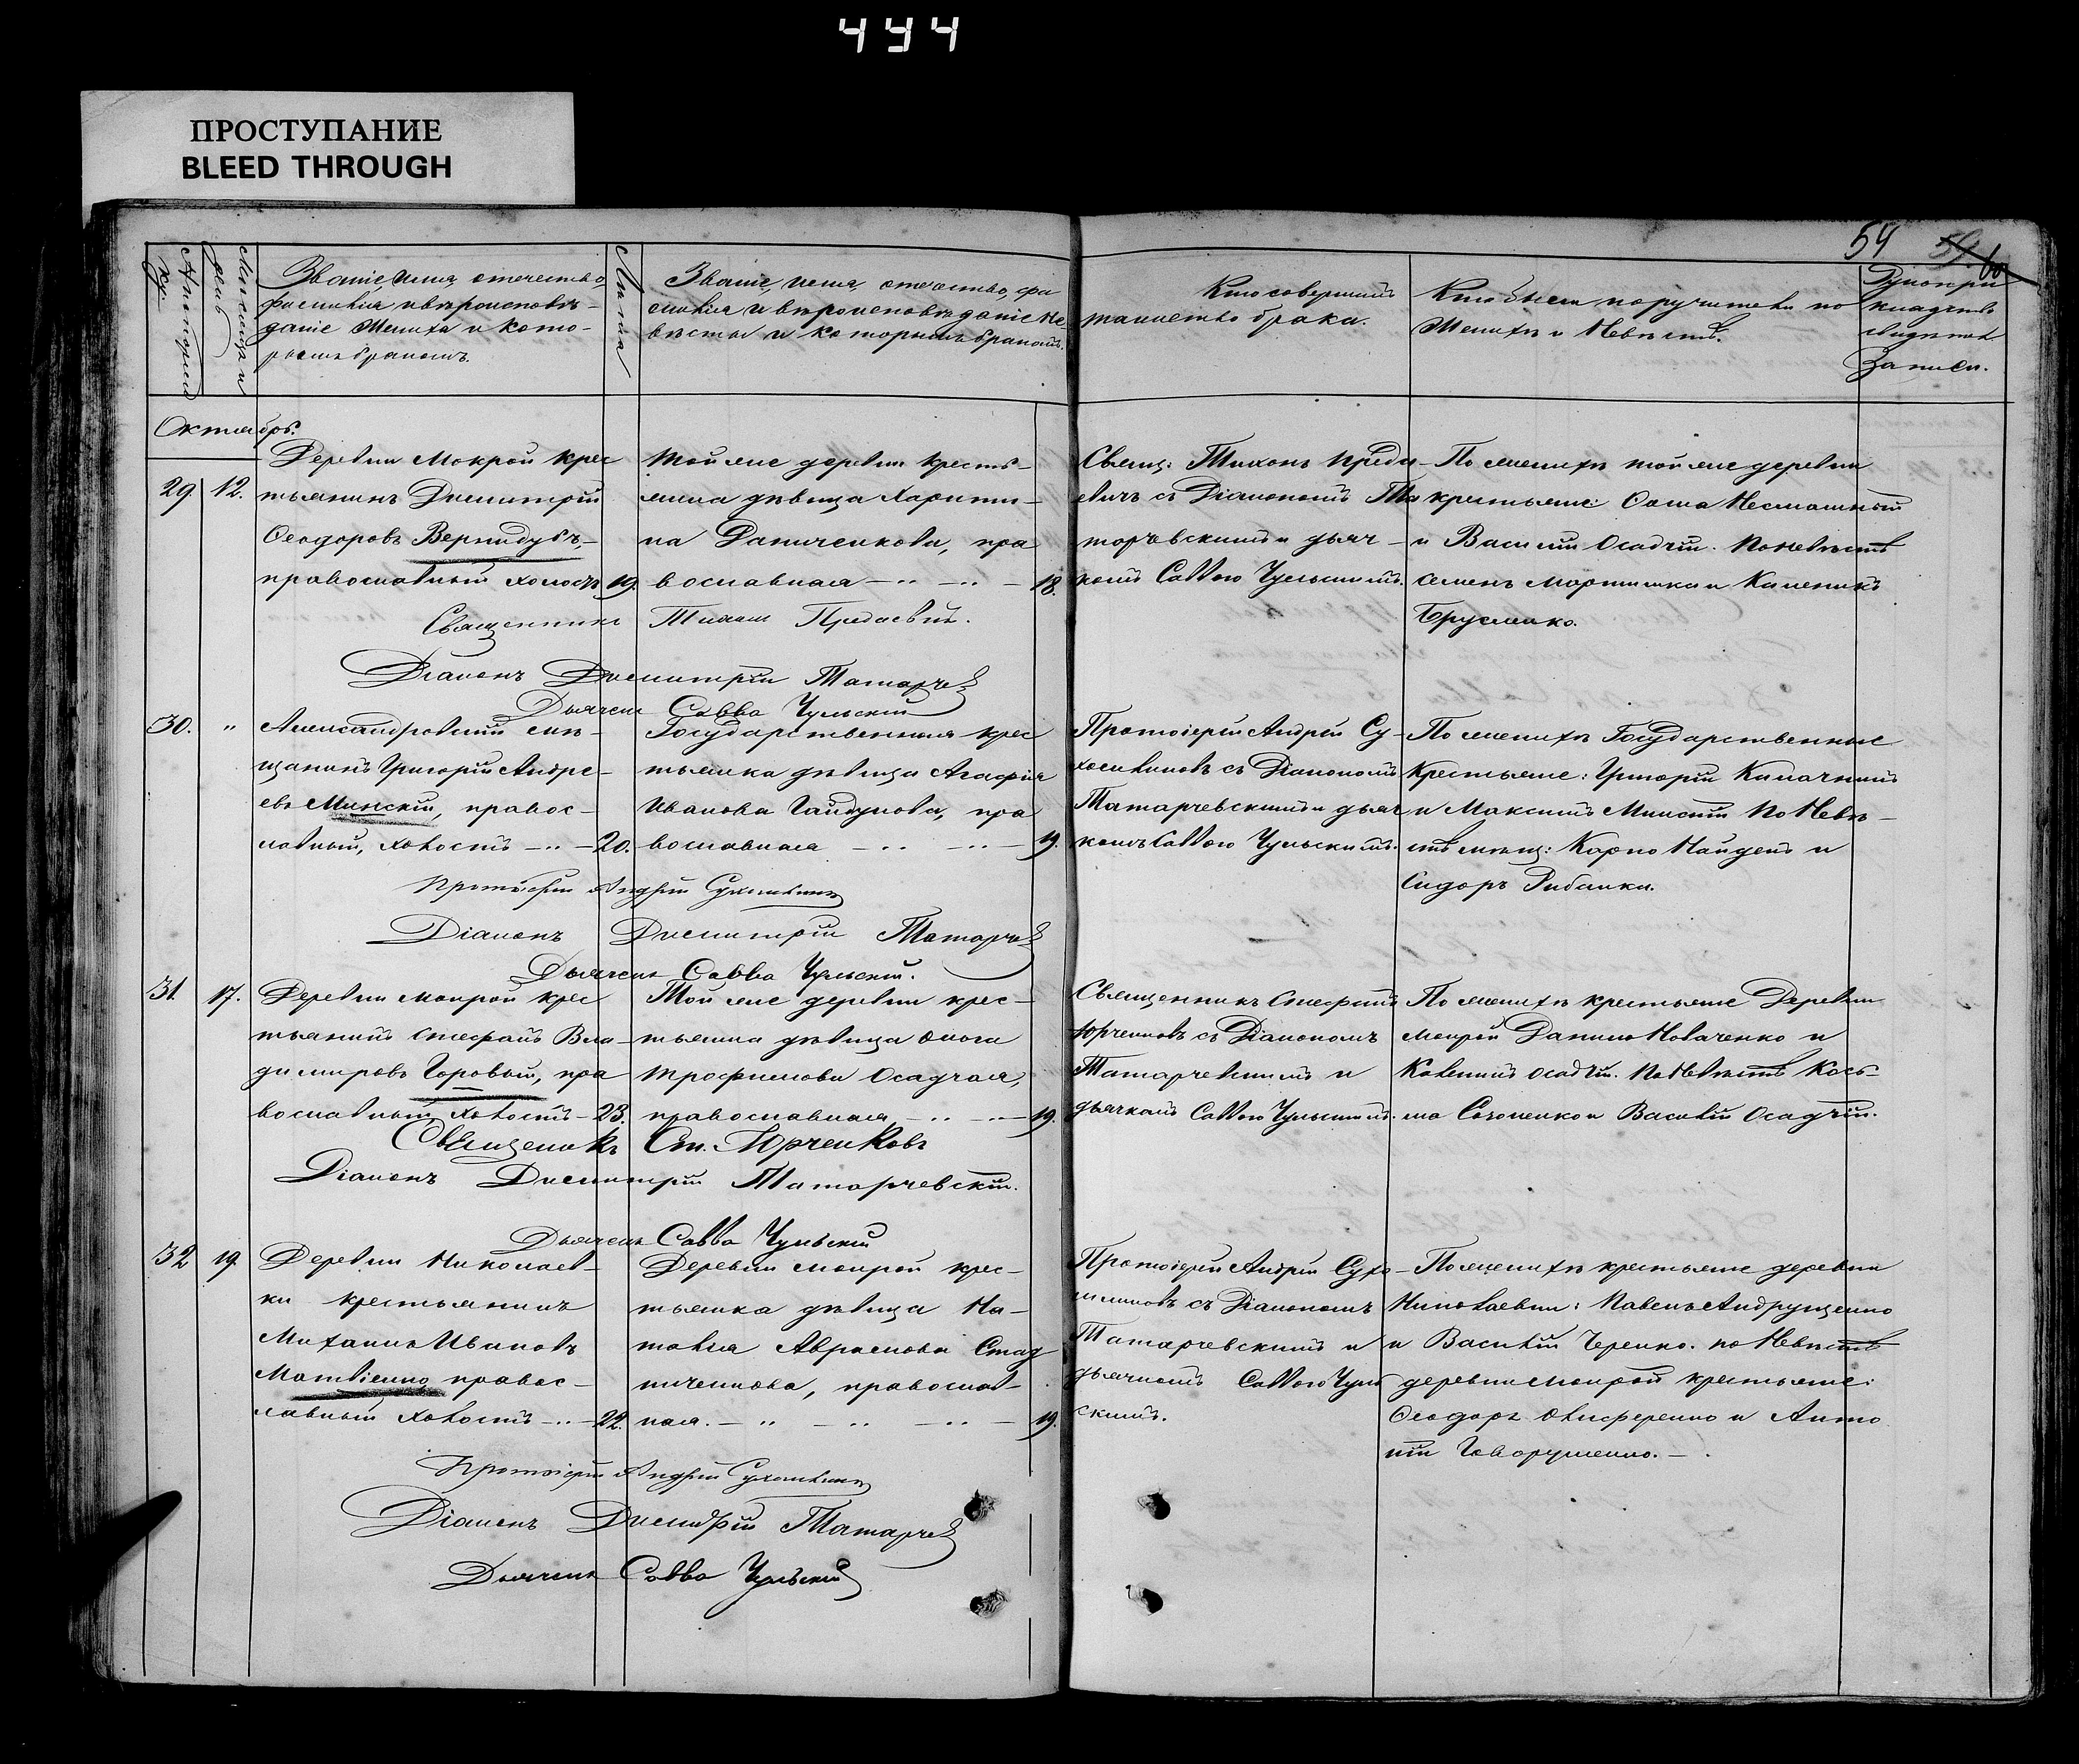 444
ПРОСТУПАНИЕ
BLEED THROUGH
54
Мѣсяцъ и
день
Званіе, имя, отечество,
фамилія и вѣроисповѣ-
даніе Жениха и кото-
рымъ бракомъ.
Лѣта
Званіе, имя, отечество, фа
милія и вѣроисповѣданіе Не
вѣсты и которымъ бракомъ.
Кто совершилъ
таинство брака.
Кто были поручители по
Женихѣ и Невѣстѣ.
Записи.
Октябрь.
29. 12.
Деревни Мокрой крес
тьянинъ Димитрій
Ѳеодоровъ Вернидубъ,
православный холостъ 19.
Той же деревни кресть-
янка дѣвица Харити-
на Даниченкова, пра
вославная 18.
Свящ: Тихонъ Преди-
евичъ съ Діакономъ Та
торчевскимъ и дьяч-
комъ Саввою Чульскимъ.
По женихѣ той же деревни
крестьяне: Ѳома Несмашный
и Василій Осадчій. По невѣстѣ
Семенъ Мартишка и Каленикъ
Брусенко.
Священникъ Тихонъ
Діаконъ Димитрій Татарчев
Дьячекъ Савва Чульскій
30. "
Александровскій мѣ-
щанинъ Григорій Андре-
евъ Минскій, правос-
лавный, холостъ 20.
Государственная крес
тьянка дѣвица Агафія
Иванова Гайдукова, пра
вославная 19.
Протоіерей Андрей Су-
хомлиновъ съ Діакономъ
Татарчевскимъ и дьяч
комъ Саввою Чульскимъ.
По женихѣ Государственные
Крестьяне: Григорій
и Максимъ Минскій По Невѣ-
стѣ мѣщ: Карпо Найденъ и
Сидоръ Рибалка.
Протоіерей Андрей Сухомлиновъ
Діаконъ Димитрій Татарчев
Дьячекъ Савва Чульскій.
31. 17.
Деревни Мокрой крес
тьянинъ Стефанъ Вла-
диміровъ Горовый, пра
вославный, холостъ 23.
Той же деревни крес-
тьянка дѣвица Ольга
Трофимова Осадчая,
православная 19.
Священникъ Стефанъ
Юрченковъ съ Діакономъ
Татарчевскимъ и
дьячкомъ Саввою Чульскимъ.
По женихѣ крестьяне Деревни
Мокрой Данило Новаченко и
Каленикъ Осадчій. По Невѣстѣ Козь-
ма Созоненко и Василій Осадчій.
Священикъ Ст. Юрченковъ
Діаконъ Димитрій Татарчевскій.
Дьячекъ Савва Чульскій
32 19.
Деревни Николаев-
ки крестьянинъ
Михаилъ Ивановъ
Матвіенко, правос-
лавный холостъ 22.
Деревни Мокрой крес-
тьянка дѣвица На-
талія Аврамова Стад
ниченкова, православ-
ная. 19.
Протоіерей Андрей Сухо-
млиновъ съ Діакономъ
Татарчевскимъ и
дьячкомъ Саввою Чуль
скимъ.
По женихѣ крестьяне деревни
Николаевки: Павелъ Андрущенко
и Василій Черенко. по Невѣстѣ
деревни Мокрой крестьяне:
Ѳеодоръ Олиференко и Анто
ній Говорущенко.
Протоіерей Андрей Сухомлиновъ
Діаконъ Димитрій Татарчев
Дьячекъ Савва Чульскій